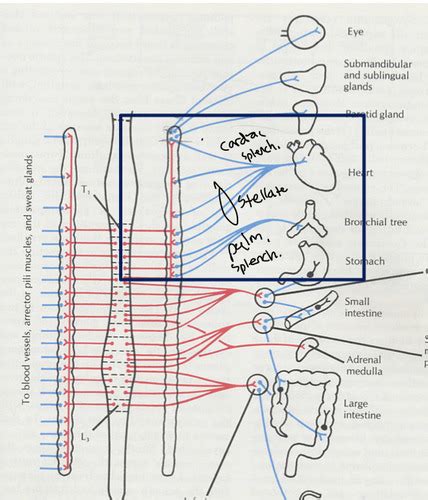 Eye
Submandibular
and sublingual
glands
Parotid gland
cardiac
splench.
Heart
T1
stellate
Bronchial tree
pulm
splench.
Stomach
Small
intestine
Adrenal
medulla
Large
intestine
L3
To blood vessels, arrector pili muscles, and sweat glands